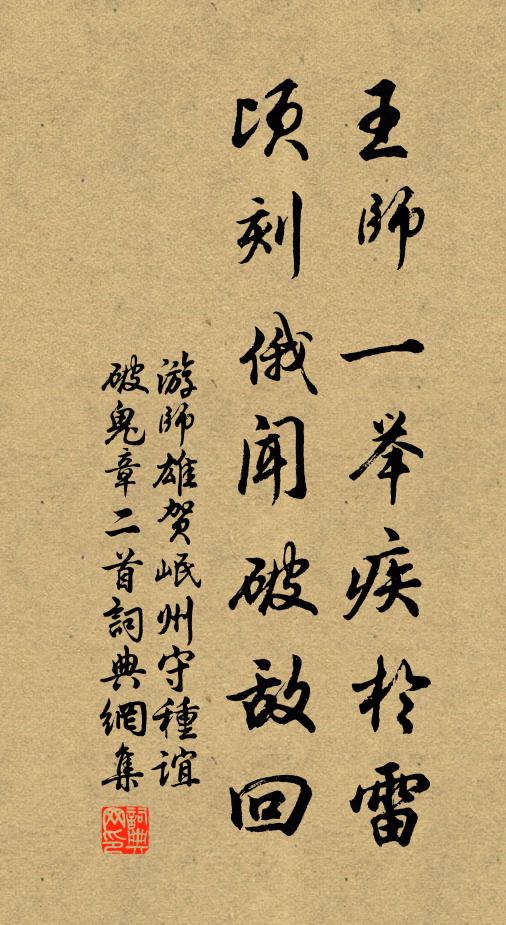 王師一举疾於雷
頃刻俄闻破敌回
游師雄贺岷州守種誼
破鬼章二首詞典網集
詞典
网印